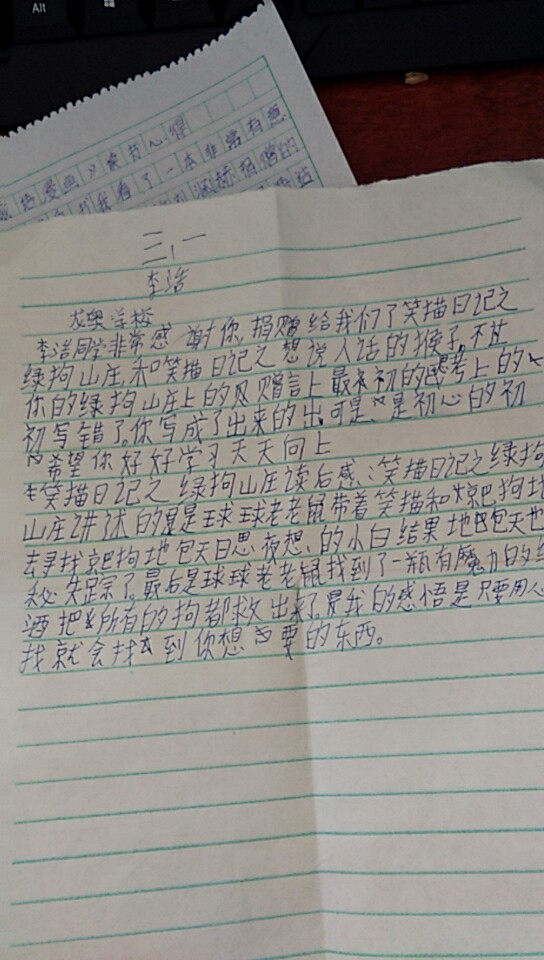 Alt
漫画》读书心得
我看了一本非常有意
三、一
李浩
龙奥学校
李浩同学非常感谢你,捐赠给我们了笑描日记之
绿拘山庄,和笑描日记之想说人话的猴子,不过
你的绿拘山庄上的贝赠言上最初的考上的
初写错了。你写成了出来的出,可是,是初心的初
希望你好好学习天天向上
笑描日记之绿拘山庄读后感:笑描日记之绿拘
山庄讲述的是球球老老鼠带着笑描和京巴拘地
去寻找京巴拘地包天日思夜想、的小白结果地包天也
秘失踪了。最后是球球老老鼠找到了一瓶有魔力的红
酒把所有的拘都救出来了。是我的感悟是只要用心
找就会找到你想要的东西。